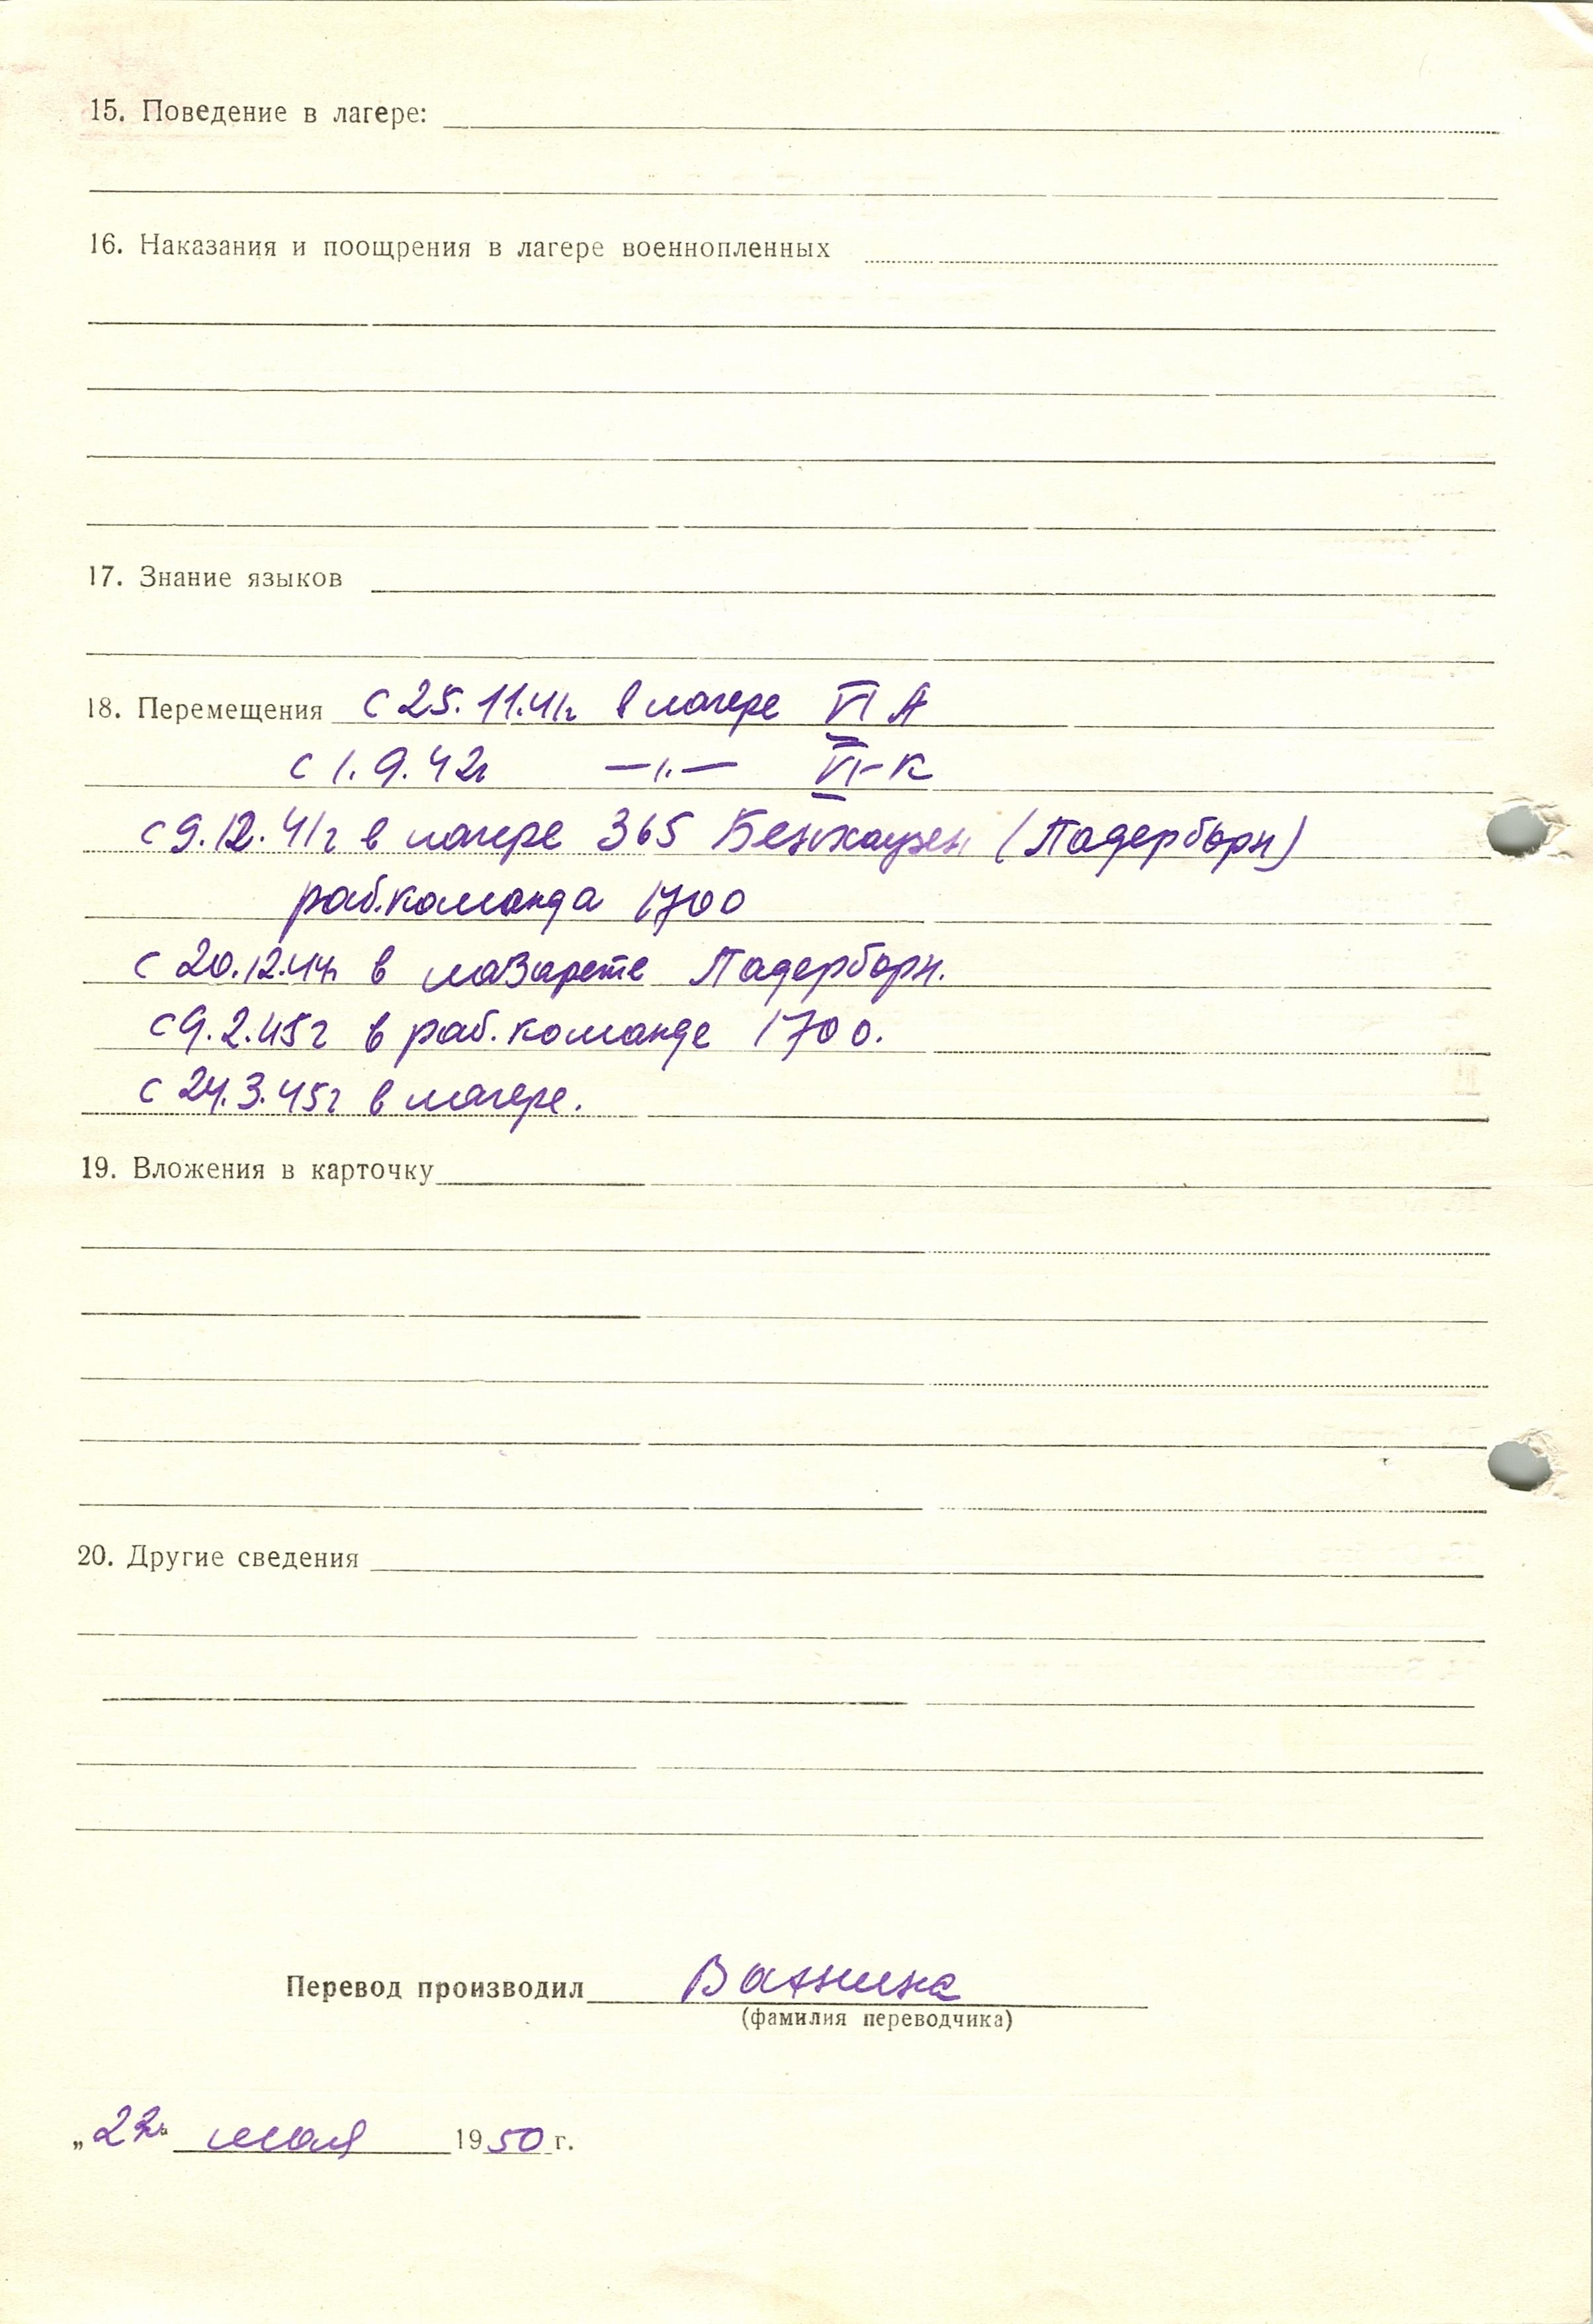 15. Поведение в лагере:
16. Наказания и поощрения в лагере военнопленных
17. Знание языков
18. Перемещения с 25.11.41г в лагере VI А
с 1.9.42г —„— VI-К
с 9.12.41г в лагере 365 Бенхаузен (Падерборн)
раб.команда 1700
с 20.12.44г в лазарете Падерборн.
с 9.2.45г в раб. команде 1700.
с 24.3.45г в лагере.
19. Вложения в карточку
20. Другие сведения
Перевод производил Ванина
(фамилия переводчика)
„22" мая 1950 г.